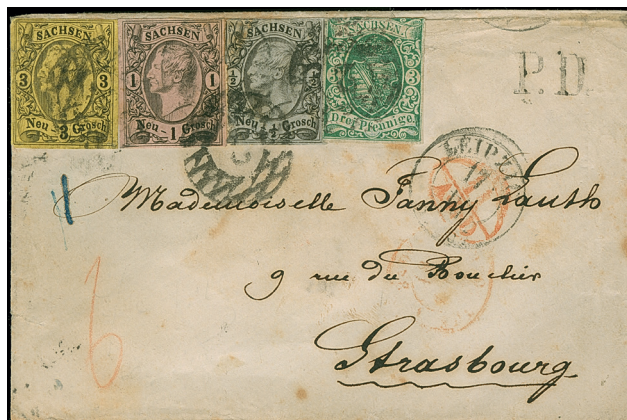 SACHSEN
3 3
Neu - 3 Grosch
SACHSEN
1 1
Neu - 1 Grosch
SACHSEN
½ ½
Neu - ½ Grosch
SACHSEN
3 3
Drei Pfennige
P.D.
LEIPZ
17
1
Mademoiselle Fanny Lauth
9 rue du Boucher
Strasbourg
6